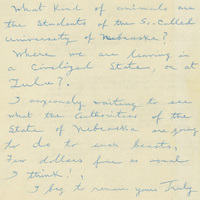 What Kind of animals are
the Students of the So-Called
University of Nebraska?
Where we are leaving in
a Civilized State, or at
Zulu?.
I anxiously waiting to see
what the Authorities of the
State of Nebraska are going
to do to such beasts,
Few dollars fine as usual
I think!,
I beg to remain yours Truly